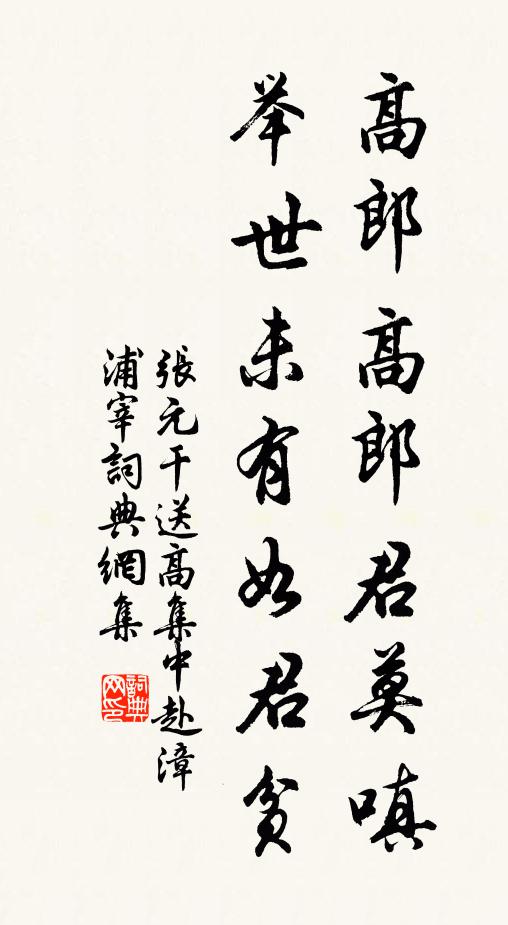 高郎高郎君莫嗔
举世未有如君贫
張元干送高集中赴漳
浦宰詞典網集
詞典
网印